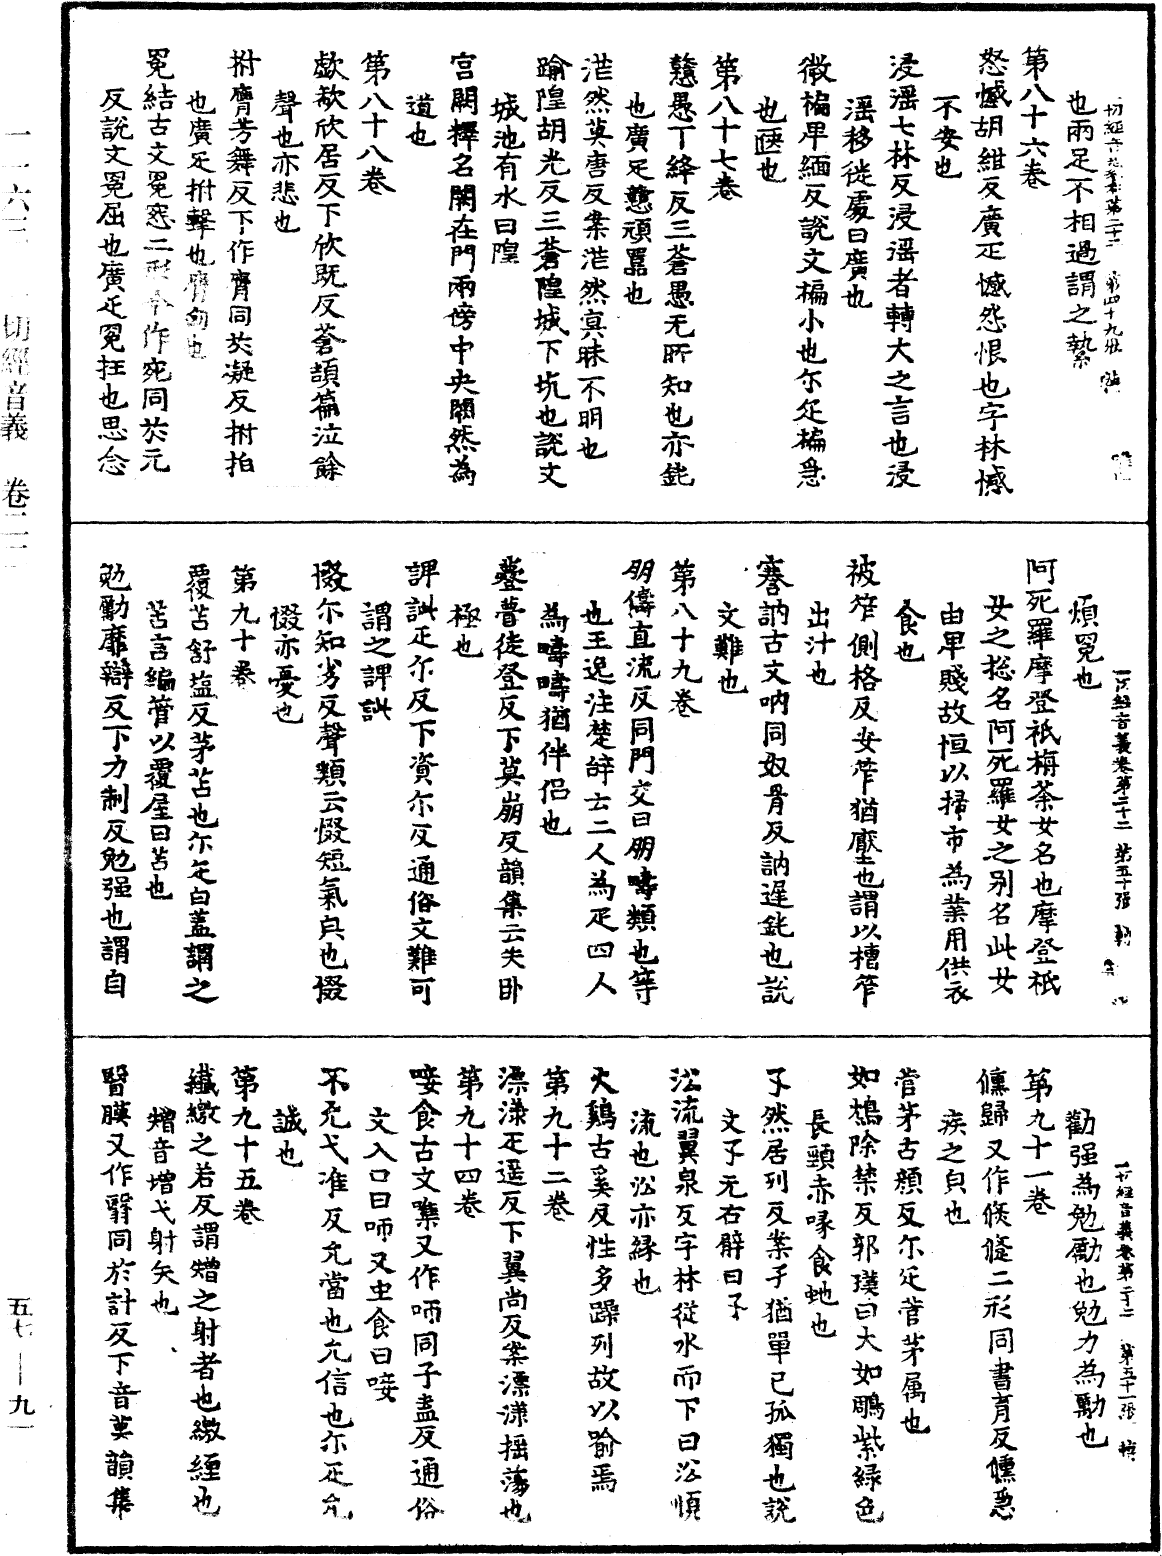 一切經音義卷第二十二 第四十九張
也兩足不相過謂之縶
第八十六卷
怒憾胡紺反廣疋憾怨恨也字林憾
不安也
浸滛七林反浸滛者轉大之言也浸
滛移徙處曰廣也
微楄卑緬反說文楄小也尓疋楄急
也陿也
第八十七卷
戇愚丁絳反三蒼愚无所知也亦鈍
也廣疋戇頑嚚也
漭然莫唐反案漭然㝠昧不明也
踰隍胡光反三蒼隍城下坑也說文
城池有水曰隍
宫闕釋名闕在門兩傍中央闕然為
道也
第八十八卷
歔欷欣居反下欣既反蒼頡篇泣餘
聲也亦悲也
拊膺芳舞反下作膺同扵凝反拊拍
也廣疋拊擊也膺匈也
冤結古文冤㤪二形今作宛同扵元
反說文冤屈也廣疋冤抂也思念
煩冤也
阿死羅摩登祇栴荼女名也摩登祇
女之捴名阿死羅女之别名此女
由卑賤故恒以掃市為業用供衣
食也
被笮側格反女笮猶壓也謂以槽笮
出汁也
謇訥古文吶同奴骨反訥遲鈍也說
文難也
第八十九卷
朋儔直流反同門交曰朋疇類也等
也王逸注楚辝云二人為疋四人
為疇疇猶伴侣也
㲪瞢徒登反下莫崩反韻集云失卧
極也
訾訿疋尓反下資尓反通俗文難可
謂之訾訿
惙尓知劣反聲類云惙短氣皃也惙
惙亦憂也
第九十卷
覆苫舒塩反茅苫也尓疋白蓋謂之
苫言編菅以覆屋曰苫也
勉勵靡辯反下力制反勉强也謂自
勸强為勉勵也勉力為勵也
第九十一卷
儵歸又作倏𠉂二形同書育反儵忽
疾之皃也
菅茅古顏反尓疋菅茅属也
如鴆除禁反郭璞曰大如鵰紫緑色
長頸赤喙食虵也
孑然居列反案孑猶單已孤獨也說
文孑无右臂曰孑
㳂流翼泉反字林從水而下曰㳂順
流也㳂亦縁也
火鷄古奚反性多躁列故以喻焉
第九十二卷
漂漾疋遥反下翼尚反案漂漾揺蕩也
第九十四卷
唼食古文嗫又作咂同子盍反通俗
文入口曰咂又虫食曰唼
不允弋准反允當也允信也尓疋允
誠也
第九十五卷
纖繳之若反謂矰之射者也繳䋫也
矰音增弋射矢也
瞖膜又作翳同於計反下音莫韻集
一一六三 一切經音義 卷二二
五七—九一